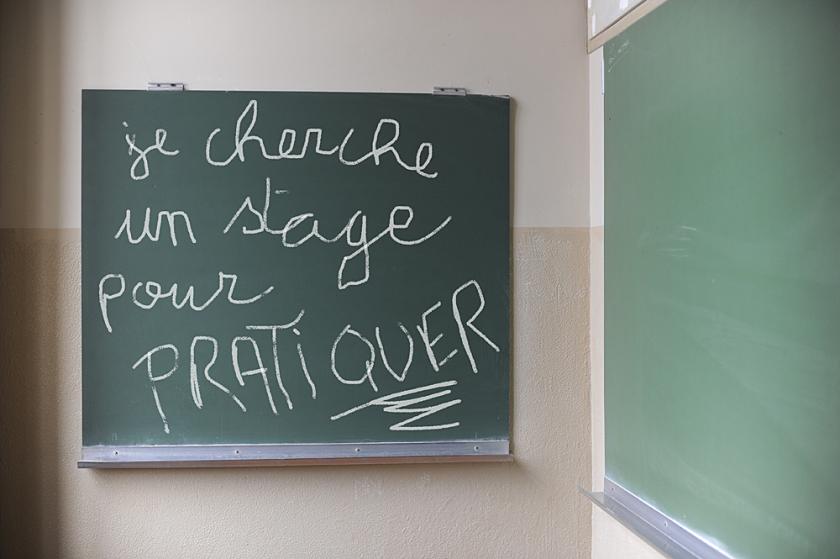 je cherche
un stage
pour
PRATiQUER